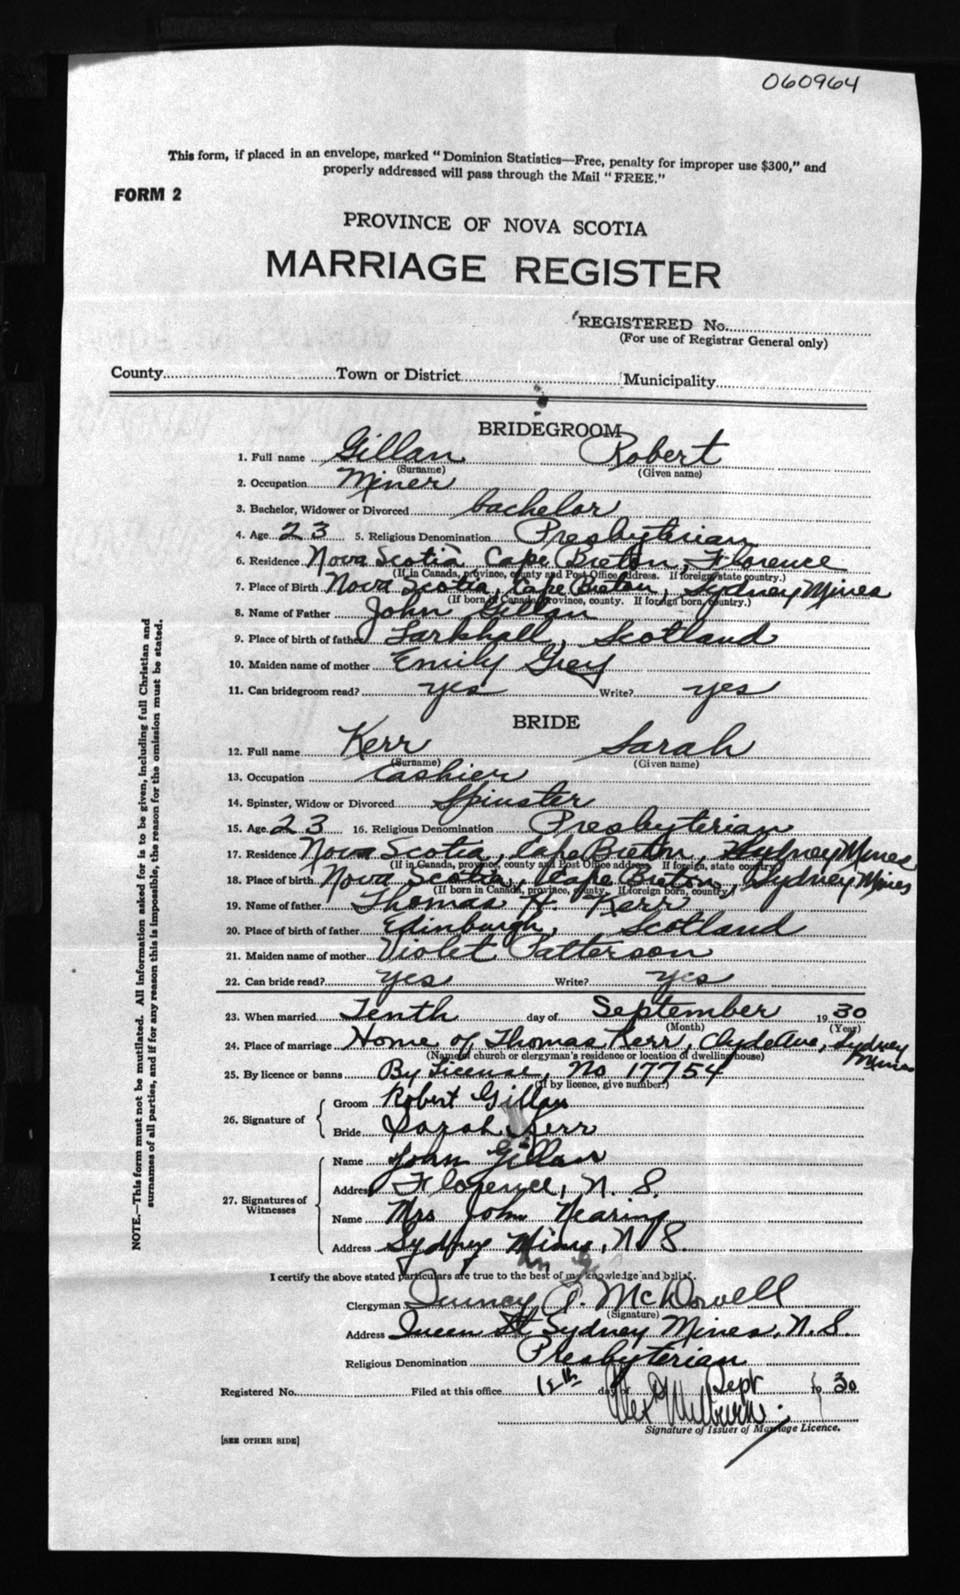 060964
This form, if placed in an envelope, marked "Dominion Statistics—Free, penalty for improper use $300," and
properly addressed will pass through the Mail "FREE."
FORM 2
PROVINCE OF NOVA SCOTIA
MARRIAGE REGISTER
REGISTERED No.
(For use of Registrar General only)
County Town or District Municipality
BRIDEGROOM
1. Full name Gillan Robert
(Surname) (Given name)
2. Occupation Miner
3. Bachelor, Widower or Divorced bachelor
4. Age 23 5. Religious Denomination Presbyterian
6. Residence Nova Scotia Cape Breton, Florence
(If in Canada, province, county and Post Office address. If foreign, state country.)
7. Place of Birth Nova Scotia, Cape Breton, Sydney Mines
(If born in Canada, province, county. If foreign born, country.)
8. Name of Father John Gillan
9. Place of birth of father Larkhall, Scotland
10. Maiden name of mother Emily Grey
11. Can bridegroom read? yes Write? yes
BRIDE
12. Full name Kerr Sarah
(Surname) (Given name)
13. Occupation Cashier
14. Spinster, Widow or Divorced Spinster
15. Age 23 16. Religious Denomination Presbyterian
17. Residence Nova Scotia, Cape Breton, Sydney Mines
(If in Canada, province, county and Post Office address. If foreign, state country)
18. Place of birth Nova Scotia, Cape Breton, Sydney Mines
(If born in Canada, province, county. If foreign born, country)
19. Name of father Thomas H. Kerr
20. Place of birth of father Edinburgh, Scotland
21. Maiden name of mother Violet Patterson
22. Can bride read? yes Write? yes
23. When married Tenth day of September 1930
(Month) (Year)
24. Place of marriage Home of Thomas Kerr, Clyde Ave, Sydney Mines
(Name of church or clergyman's residence or location of dwelling house)
25. By licence or banns By License, No 17754
(If by licence, give number.)
26. Signature of
Groom Robert Gillan
Bride Sarah Kerr
27. Signatures of Witnesses
Name John Gillan
Address Florence, N. S.
Name Mrs John Nearing
Address Sydney Mines, N S.
I certify the above stated particulars are true to the best of my knowledge and belief.
Clergyman Quincy A. McDowell
(Signature)
Address Queen St Sydney Mines, N. S.
Religious Denomination Presbyterian
Registered No. Filed at this office 12th day of Sept 30
Signature of Issuer of Marriage Licence.
[SEE OTHER SIDE]
NOTE.—This form must not be mutilated. All information asked for is to be given, including full Christian and
surnames of all parties, and if for any reason this is impossible, the reason for the omission must be stated.